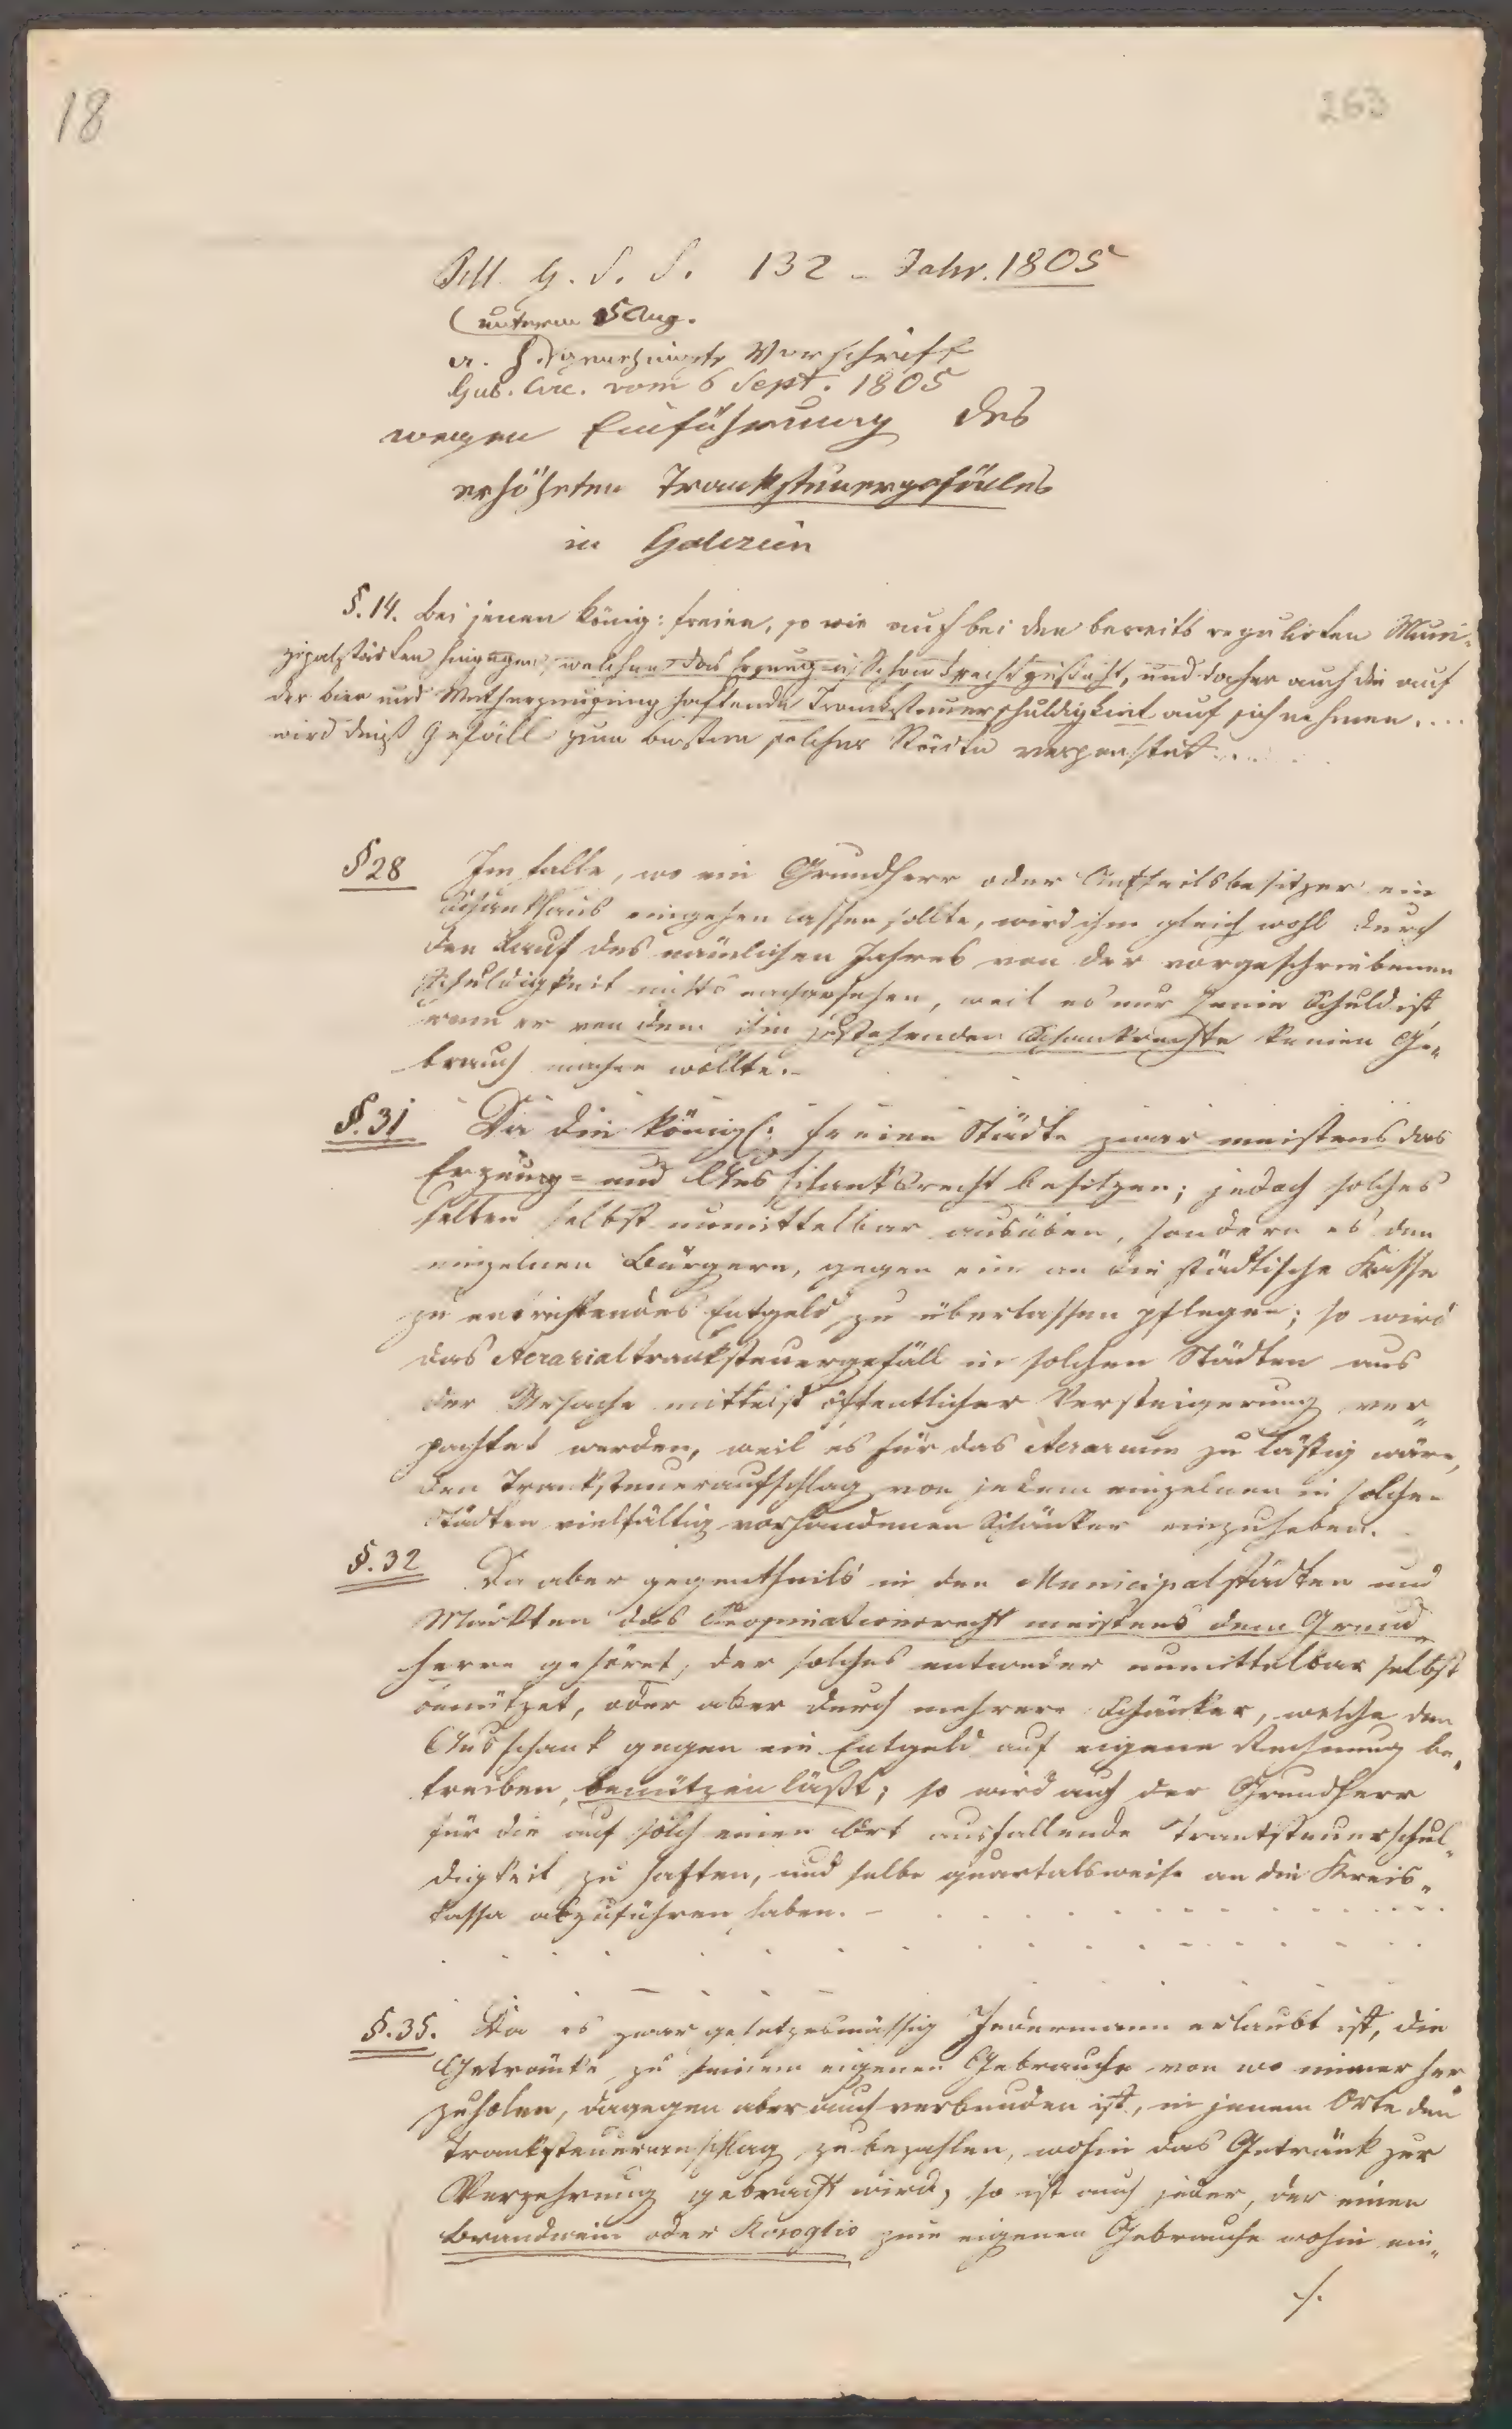 18
263
Pill. G. S. S. 132 - Jahr. 1805
(unterm 5 Aug.
a. h. genehmigte Vorschrift
Gub. Circ. vom 6 Sept. 1805
wegen Einführung des
erhöhten Tranksteuergefälles
in Galizien
§. 14. Bei jenen könig: freien, so wie auch bei den bereits regulirten Muni-
zipalstädten hingegen, welchen das Erzeug- u. Schankrecht zusteht, und daher auch die auf
der Bier und Metherzeugung haftende Tranksteuerschuldigkeit auf sich nehmen....
wird dieß Gefäll zum besten solcher Städte verpachtet....
§ 28 Im Falle, wo ein Grundherr oder Antheilsbesitzer ein
Schankhaus eingehen lassen sollte, wird ihm gleich wohl durch
den Lauf des nämlichen Jahres von der vorgeschriebenen
Schuldigkeit nichts nachgesehen, weil es nur seine Schuld ist
wenn er von dem ihm zustehenden Schankrechte keinen Ge-
brauch machen wollte.-
§. 31 Da die königl: freien Städte zwar meistens das
Erzeug- und Ausschanksrecht besitzen; jedoch solches
selten selbst unmittelbar ausüben, sondern es den
einzelnen Bürgern, gegen ein an die städtische Kasse
zu entrichtendes Entgeld zu überlassen pflegen; so wird
das Aerarialtranksteuergefäll in solchen Städten aus
der Ursache mittelst öffentlicher Versteigerung ver-
pachtet werden, weil es für das Aerarium zu lästig wäre,
den Tranksteueraufschlag von jedem einzelnen in solchen
Städten vielfältig vorhandenen Schänker einzuheben.
§. 32 Da aber gegentheils in den Municipalstädten und
Märkten das Propinationsrecht meistens dem Grund-
herrn gehöret, der solches entweder unmittelbar selbst
benützet, oder aber durch mehrere Schänker, welche den
Ausschank gegen ein Entgeld auf eigene Rechnung be-
treiben, benützen läßt; so wird auch der Grundherr
für die auf solch einen Ort ausfallende Tranksteuerschul-
digkeit zu haften, und selbe quartalsweise an die Kreis-
kassa abzuführen haben. -
§. 35. Da es zwar gesetzesmässig Jedermann erlaubt ist, die
Getränke zu seinem eigenen Gebrauche von wo immer her
zuholen, dagegen aber auch verbunden ist, in jenem Orte den
Tranksteueranschlag zu bezahlen, wohin das Getränk zur
Verzehrung gebracht wird, so ist auch jeder, der einen
Brandwein oder Rosoglio zum eigenen Gebrauche wohin ein-
./.